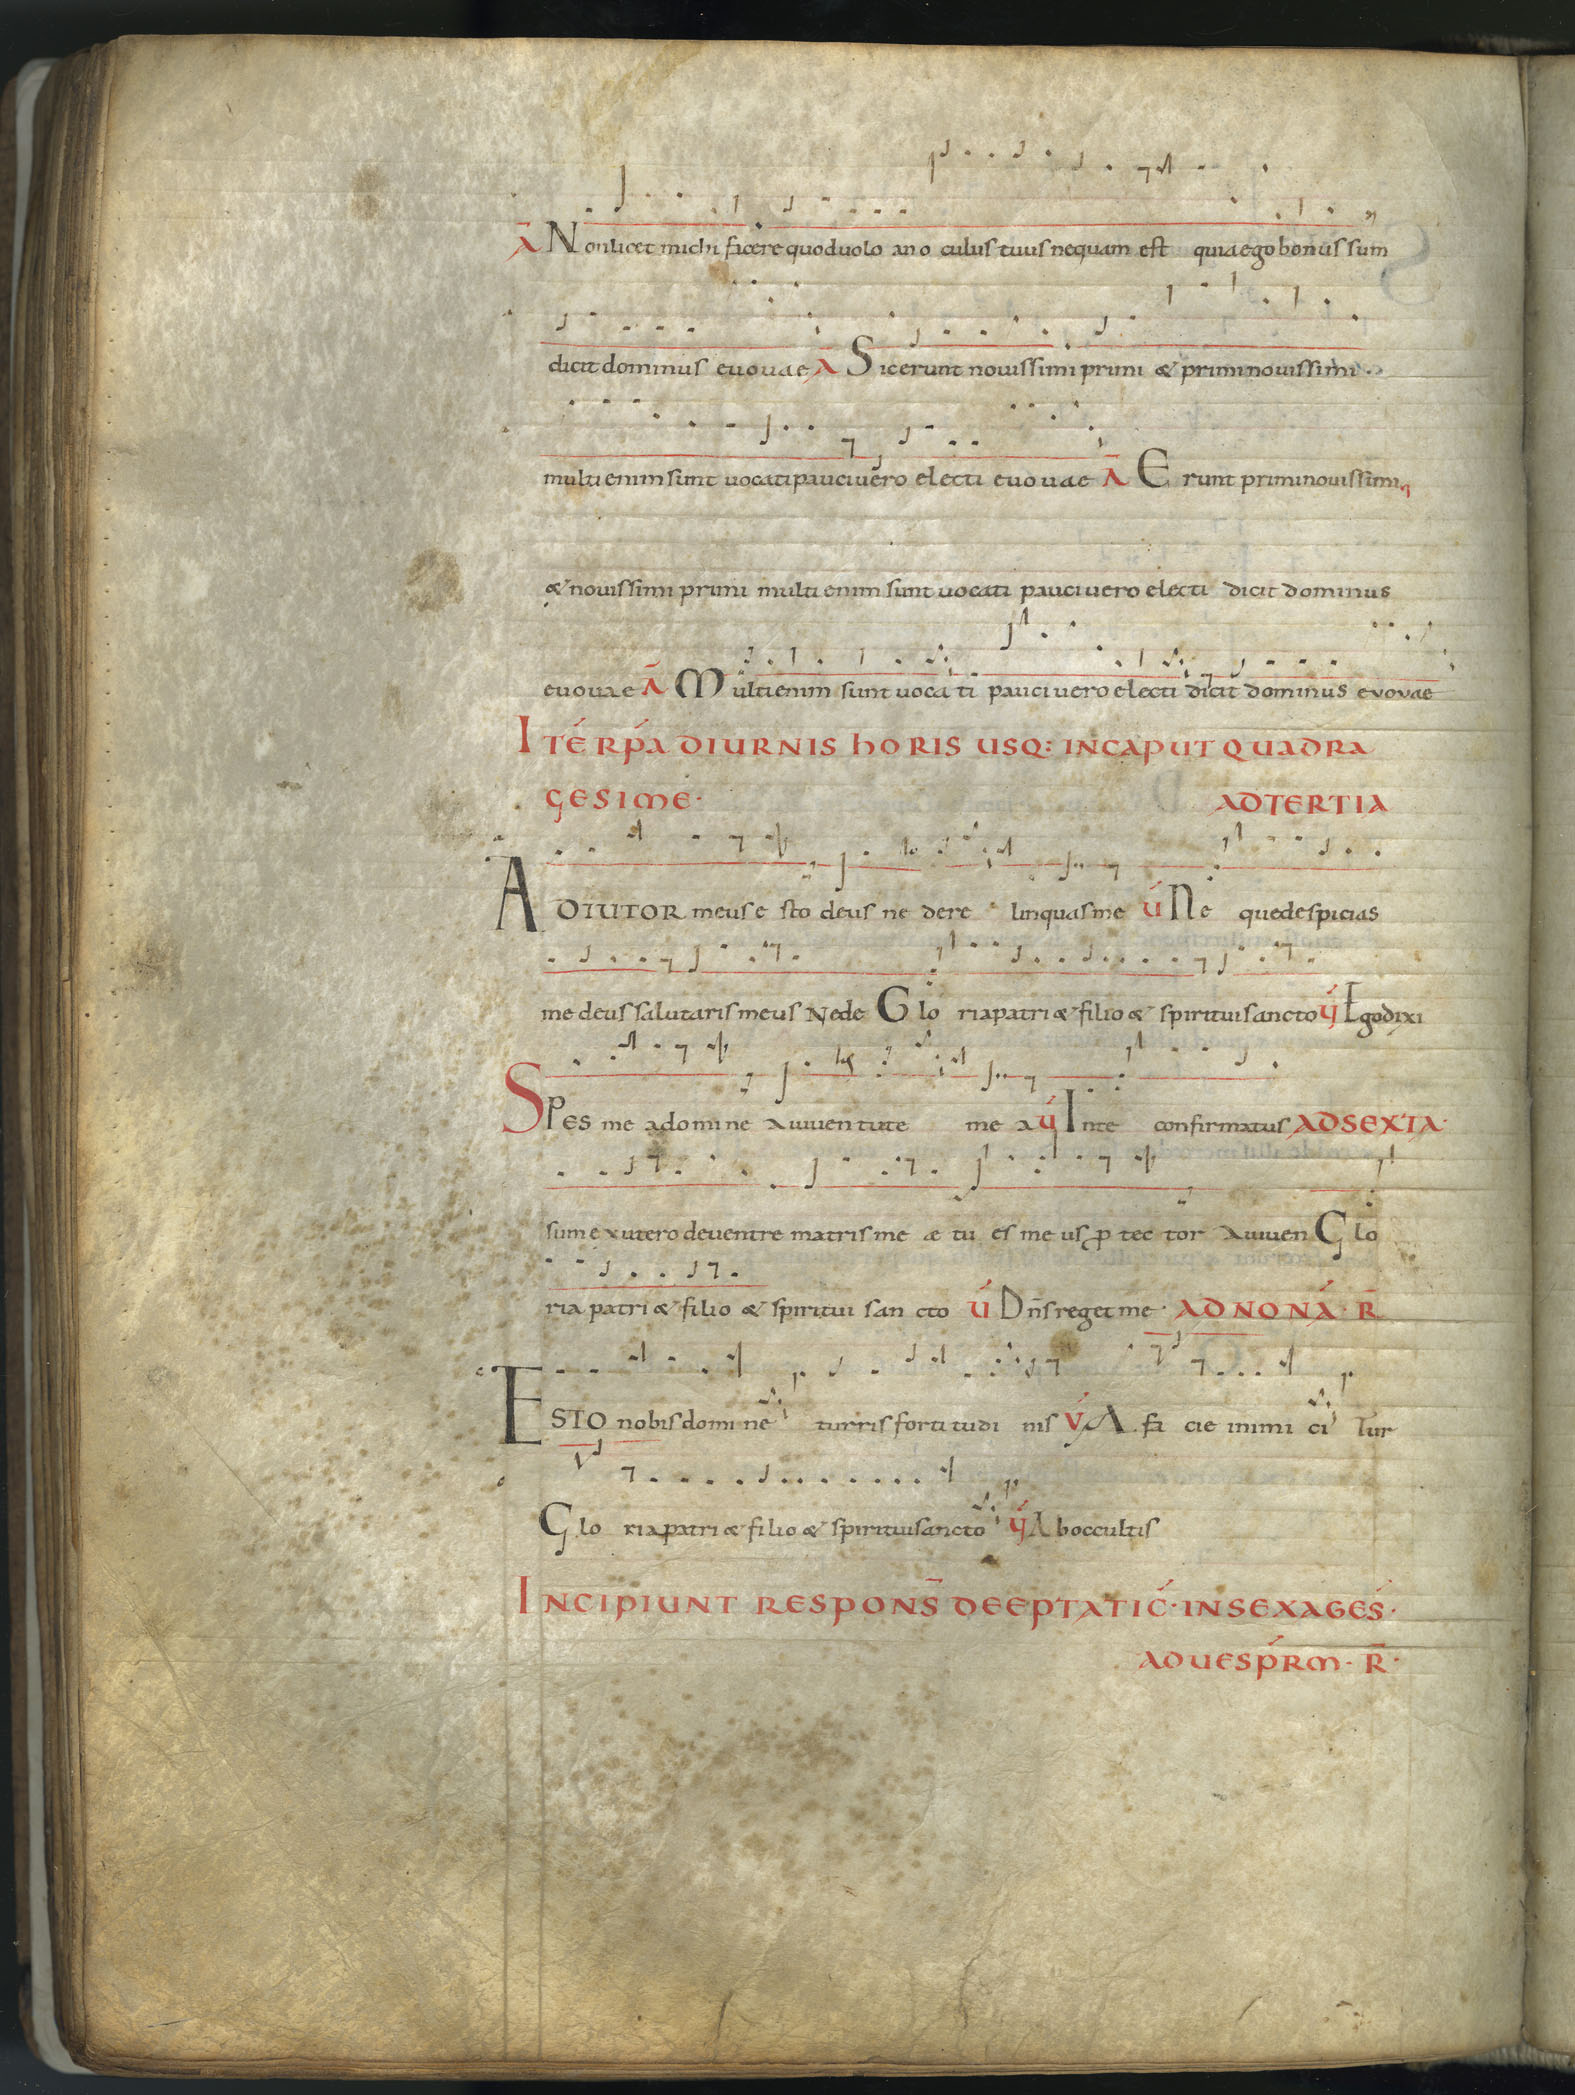 Ā Non licet michi facere quod uolo an oculus tuus nequam est quia ego bonus sum
dicit dominus euouae A Sic erunt nouissimi primi & primi nouissimi
multi enim sunt uocati pauci uero electi euouae Ā Erunt primi nouissimi
& nouissimi primi multi enim sunt uocati pauci uero electi dicit dominus
euouae Ā Multi enim sunt uocati pauci uero electi dicit dominus euouae
ITĒ RPA DIURNIS HORIS USQ: IN CAPUT QUADRA
GESIME· AD TERTIA
ADIUTOR meus esto deus ne dere linquas me V Ne que despicias
me deus salutaris meus Nede Gloria patri & filio & spiritui sancto V Ego dixi
SPES mea domine a iuuentute mea V In te confirmatus AD SEXTA·
sum ex utero de uentre matris me æ tu es meus ptector A iuuen Glo
ria patri & filio & spiritui sancto V Dn̄s reget me· AD NONĀ· R̄
ESTO nobis domine turris fortitudinis V A facie inimici Tur
Gloria patri & filio & spiritui sancto V Ab occultis
INCIPIUNT RESPONS̄ DE EPTATIC̄· IN SEXAGES̄·
AD UESPRM· R̄·